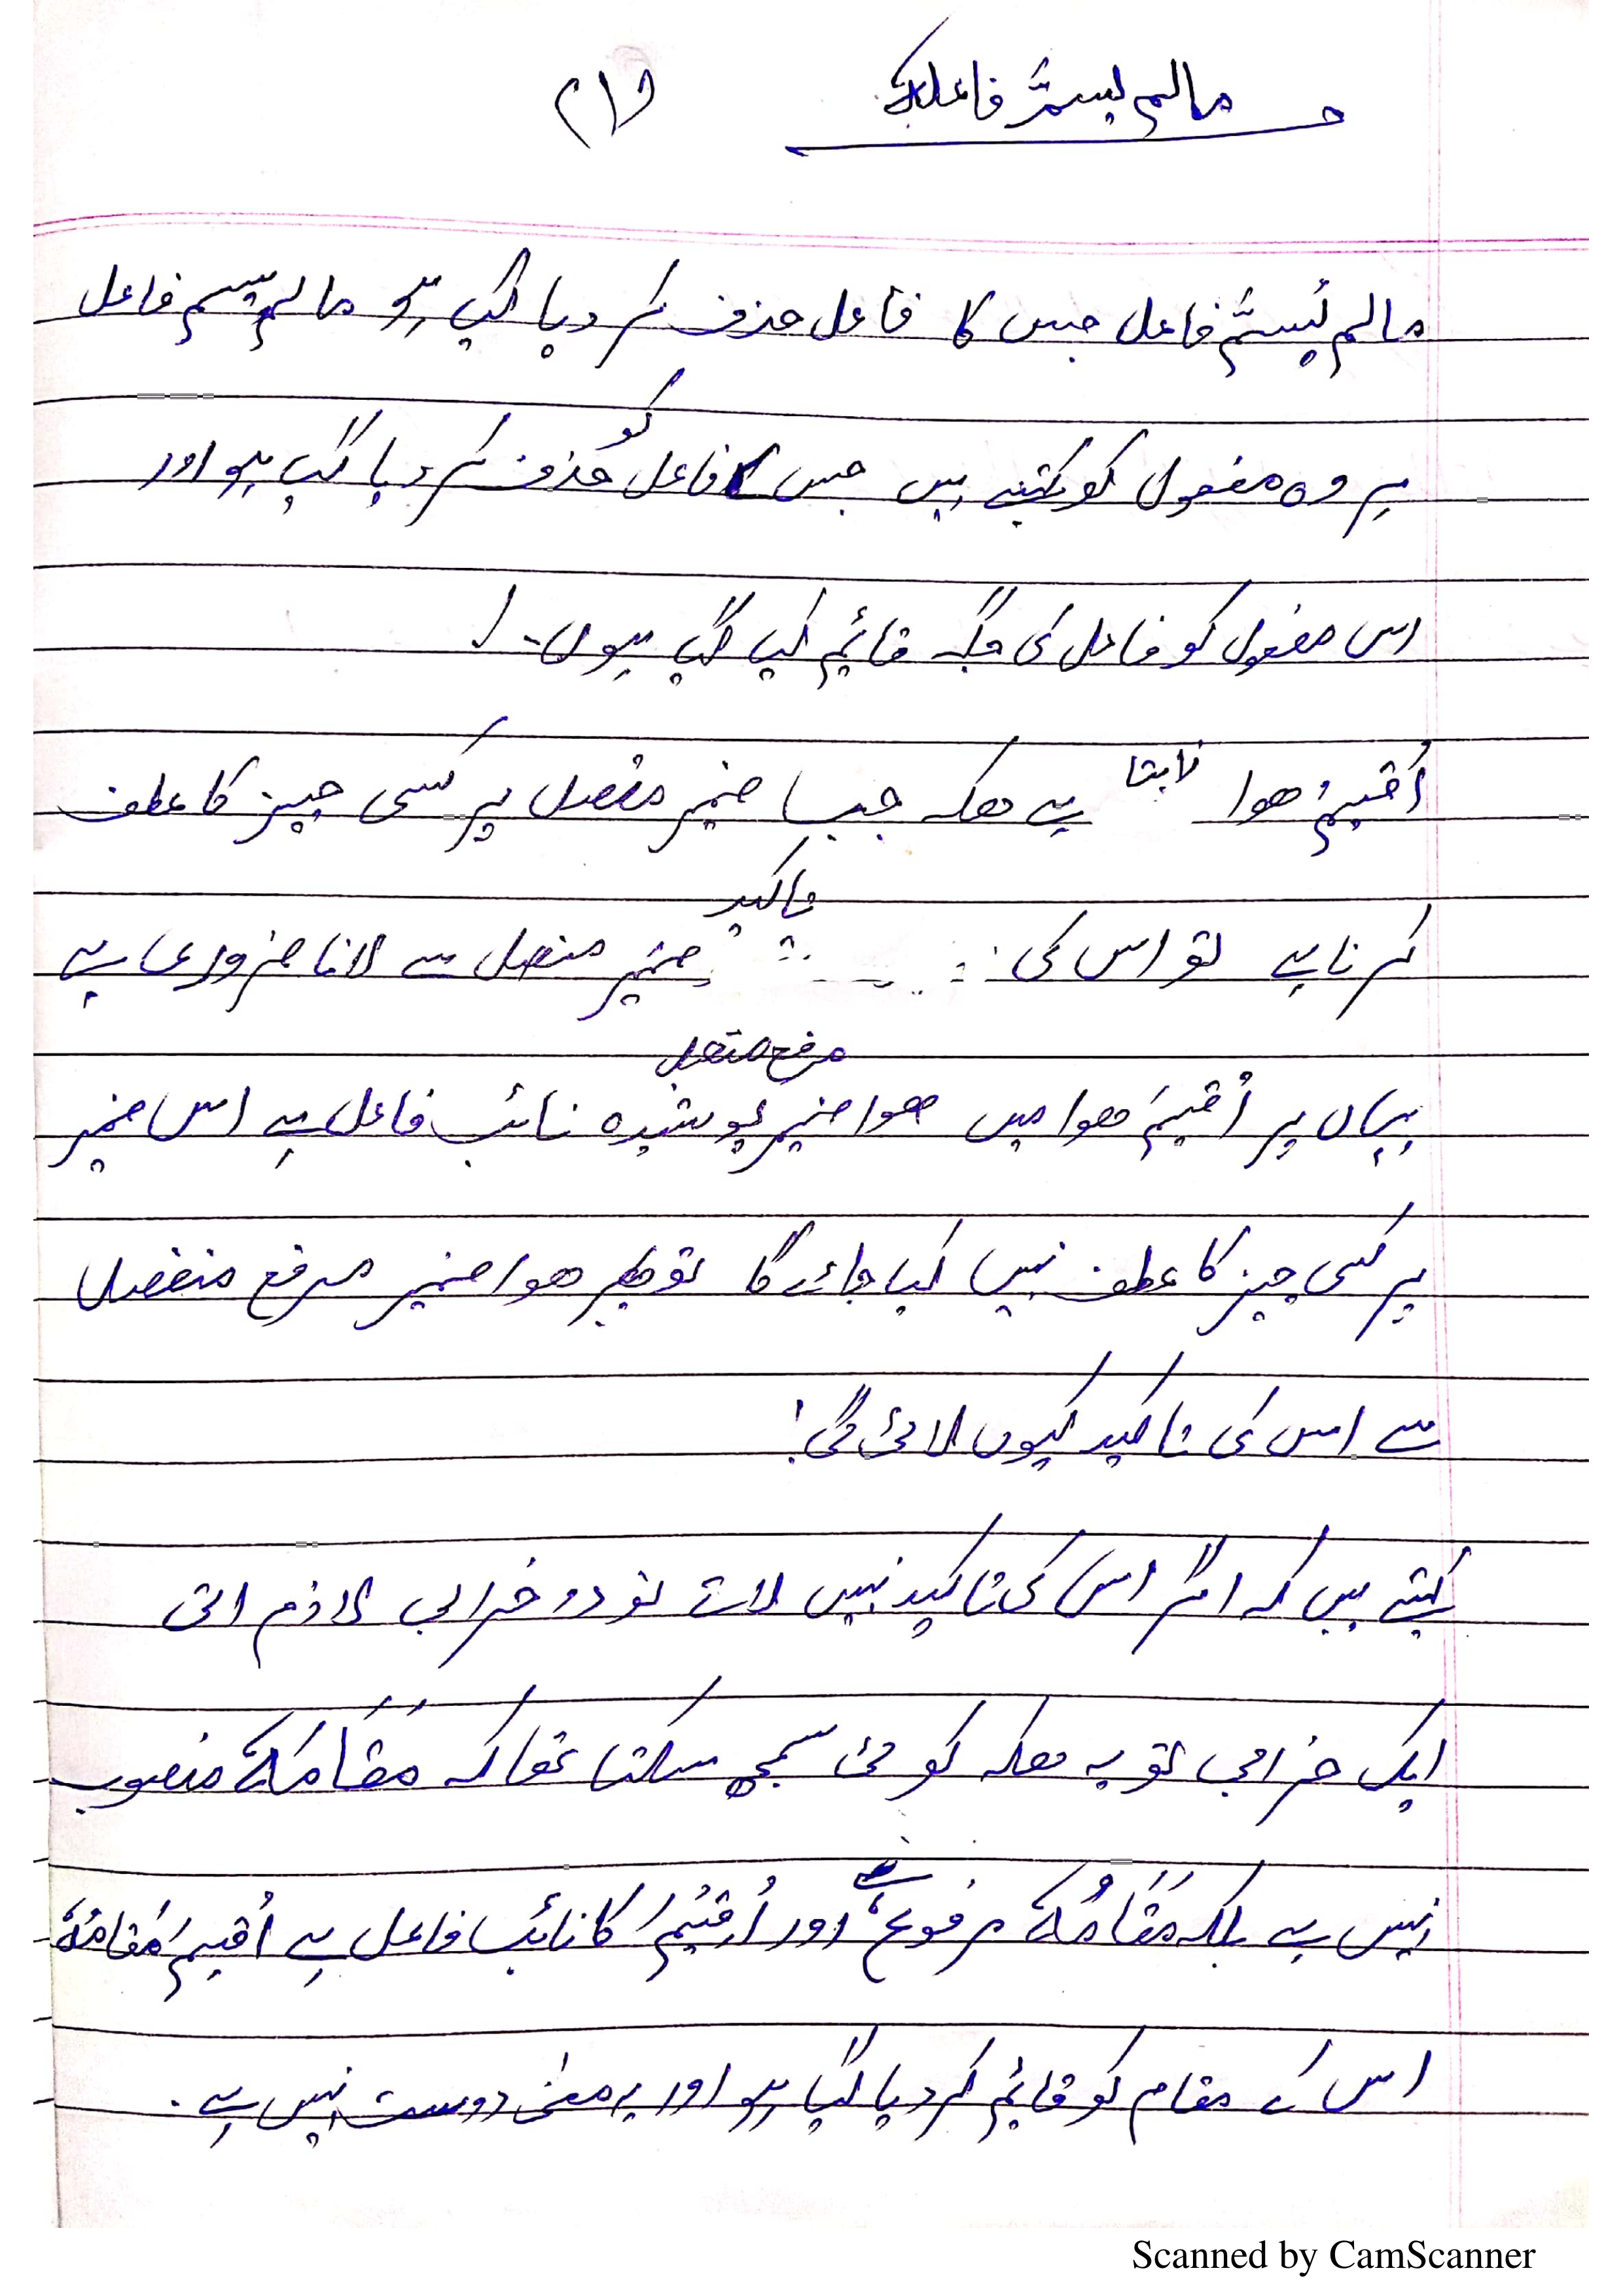 مالم یسمَّ فاعلہٗ
مالم یُسمَّ فاعل جس کا فاعل حذف کر دیا گیا ہو مالم یسم فاعل
ہر وہ مفعول کو کہتے ہیں جس فاعل کو حذف کر دیا گیا ہو اور
اس مفعول کو فاعل کی جگہ قائم کیا گیا ہوں۔
اُقیمَ ھوا ضابتا یہ ھیکہ جب ضمیر متصل پر کسی چیز کا عطف
کرنا ہے تو اس کی تاکید ضمیر منفصل سے لانا ضروری ہے
یہاں پر اُقیمَ ھوا میں ھوا ضمیر مرفع متصل پوشیدہ نائب فاعل ہے اس ضمیر
پر کسی چیز کا عطف نہیں کیا جائے گا تو پھر ھوا ضمیر مرفع منفصل
سے اس کی تاکید کیوں لائی گی!
کہتے ہیں کہ اگر اس کی تاکید نہیں لاتے تو دو خرابی لازم اتی
ایک خرابی تو یہ ھیکہ کوئی سمجھ سکتا تھا کہ مَقَامَہٗ منصوب
نہیں ہے بلکہ مَقَامُہٗ مرفوع ہے اور اُقیمَ کا نائب فاعل ہے اُقیمَ مَقامُہٗ
اس کے مقام کو قائم کر دیا گیا ہو اور یہ معنیٰ دوست نہیں ہے۔
Scanned by CamScanner